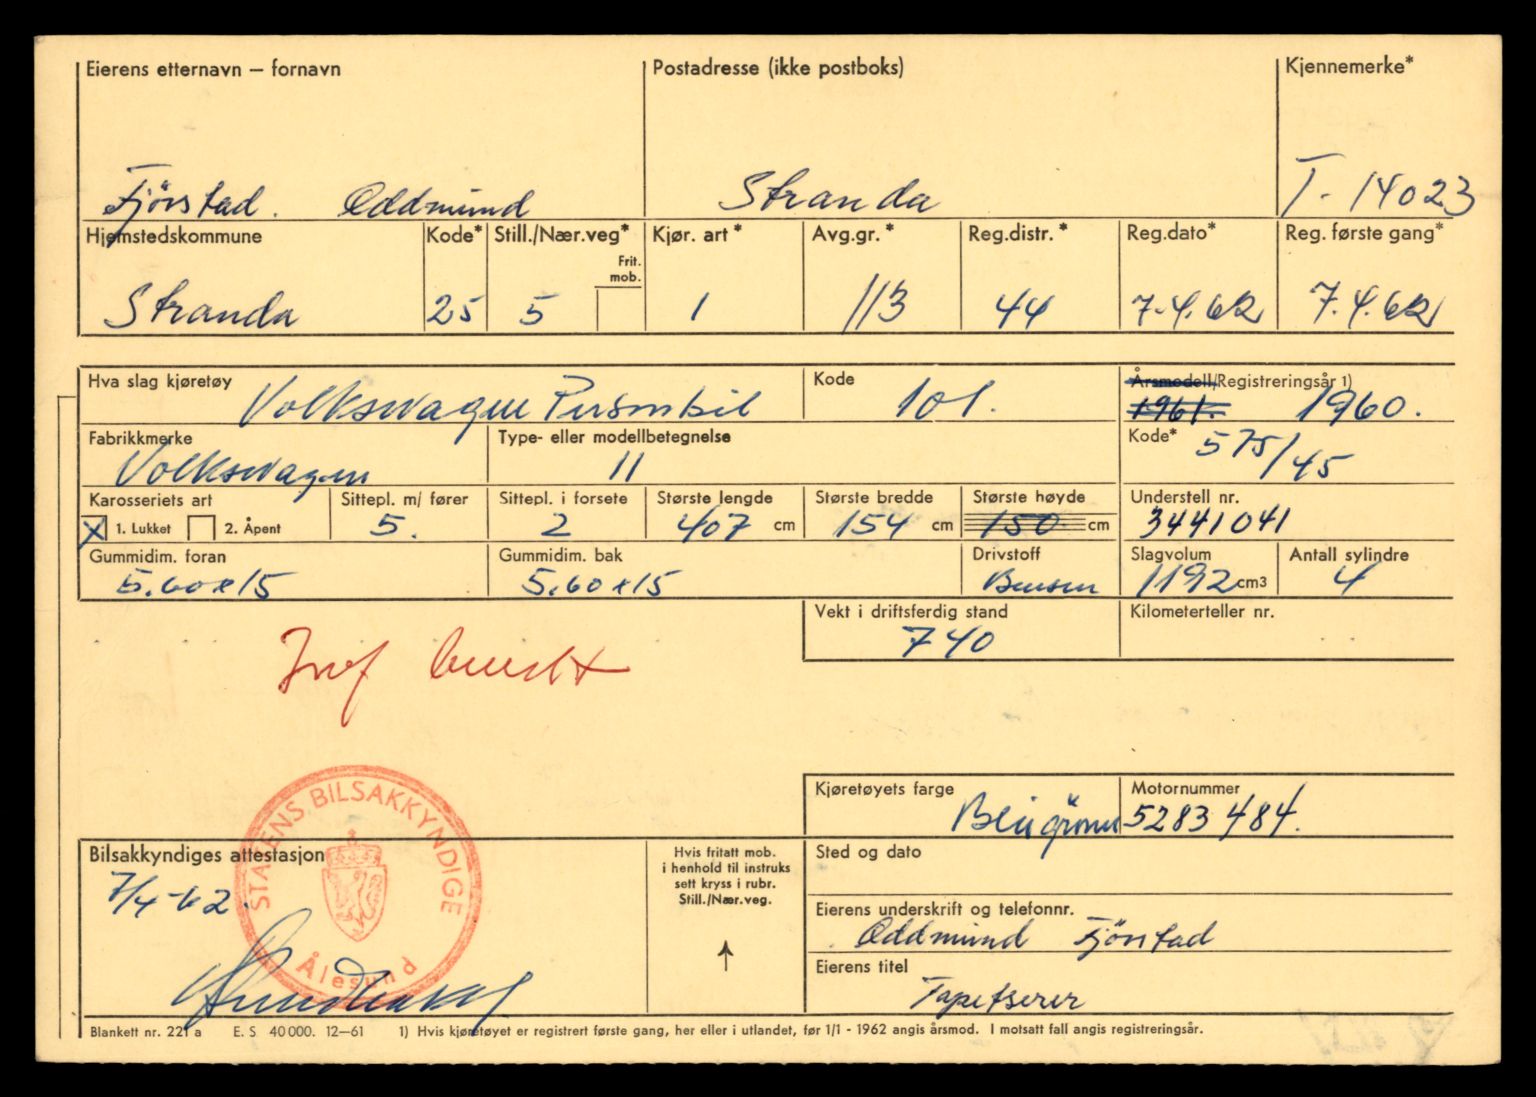 Eierens etternavn – fornavn Postadresse (ikke postboks) Kjennemerke*
Fjörstad. Oddmund Stranda T- 14023
Hjemstedskommune Kode* Still./Nær.veg* Kjør. art* Avg.gr.* Reg.distr.* Reg.dato* Reg. første gang*
Frit. mob.
Stranda 25 5 1 113 44 7.4.62 7.4.62
Hva slag kjøretøy Kode Årsmodell/Registreringsår 1)
Volkswagen Personbil 101. 1961. 1960.
Fabrikkmerke Type- eller modellbetegnelse Kode*
Volkswagen 11 575/45
Karosseriets art Sittepl. m/ fører Sittepl. i forsete Største lengde Største bredde Største høyde Understell nr.
X 1. Lukket 2. Åpent 5. 2 407 cm 154 cm 150 cm 3441041
Gummidim. foran Gummidim. bak Drivstoff Slagvolum Antall sylindre
5.60x15 5.60x15 Bensin 1192 cm3 4
Vekt i driftsferdig stand Kilometerteller nr.
740
Kjøretøyets farge Motornummer
5283484.
STATENS BILSAKKYNDIGE
Ålesund
Bilsakkyndiges attestasjon
7/4-62.
Hvis fritatt mob.
i henhold til instruks
sett kryss i rubr.
Still./Nær.veg.
Sted og dato
Eierens underskrift og telefonnr.
Oddmund Fjörstad
Eierens titel
Tapetserer
Blankett nr. 221 a E. S. 40 000. 12—61 1) Hvis kjøretøyet er registrert første gang, her eller i utlandet, før 1/1 - 1962 angis årsmod. I motsatt fall angis registreringsår.